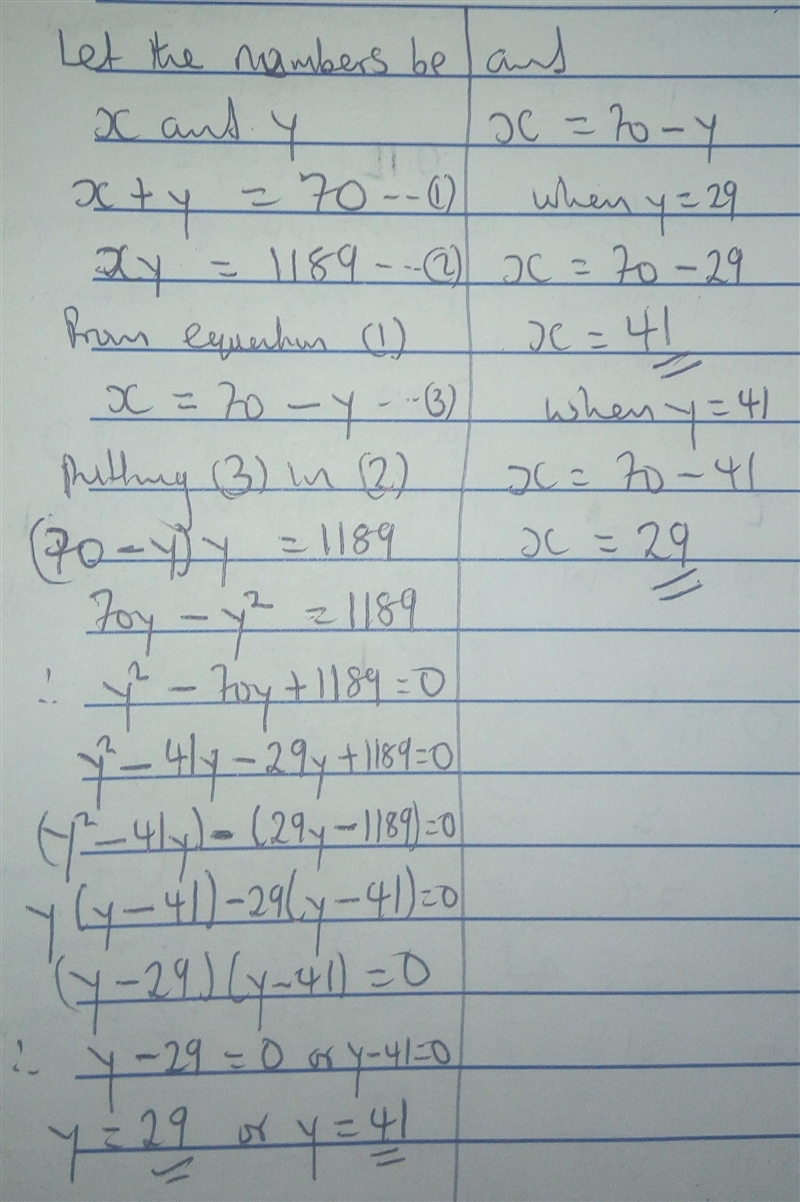 Let the numbers be
x and y
x + y = 70 --- (1)
xy = 1189 --- (2)
From equation (1)
x = 70 - y --- (3)
putting (3) in (2)
(70 - y) y = 1189
70y - y² = 1189
∴ y² - 70y + 1189 = 0
y² - 41y - 29y + 1189 = 0
(y² - 41y) - (29y - 1189) = 0
y (y - 41) - 29(y - 41) = 0
(y - 29) (y - 41) = 0
∴ y - 29 = 0 or y - 41 = 0
y = 29 or y = 41
and
x = 70 - y
when y = 29
x = 70 - 29
x = 41
when y = 41
x = 70 - 41
x = 29